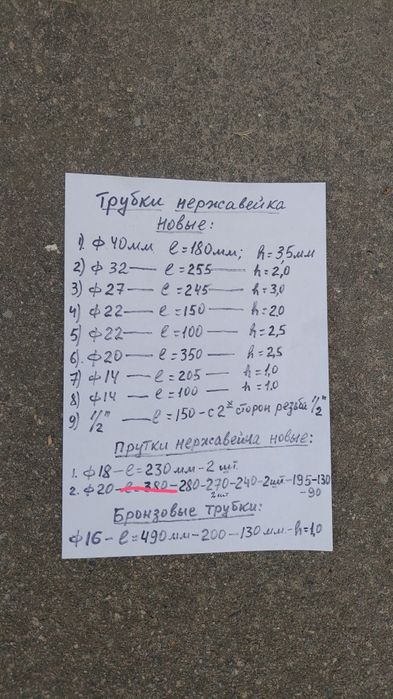 Трубки нержавейка
новые:
1) ф 40мм ℓ=180мм; h=3,5мм
2) ф 32 — ℓ=255 — h=2,0
3) ф 27 — ℓ=245 — h=3,0
4) ф 22 — ℓ=150 — h=2,0
5) ф 22 — ℓ=100 — h=2,5
6) ф 20 — ℓ=350 — h=2,5
7) ф 14 — ℓ=205 — h=1,0
8) ф 14 — ℓ=100 — h=1,0
9) 1/2" — ℓ=150 - с 2х сторон резьба 1/2"
Прутки нержавейка новые:
1. ф 18 - ℓ=230 мм - 2 шт.
2. ф 20 - ℓ=380 - 280 - 270 - 240 - 2шт - 195 - 130
2шт - 90
Бронзовые трубки:
ф 16 - ℓ=490 мм - 200 - 130 мм - h=1,0